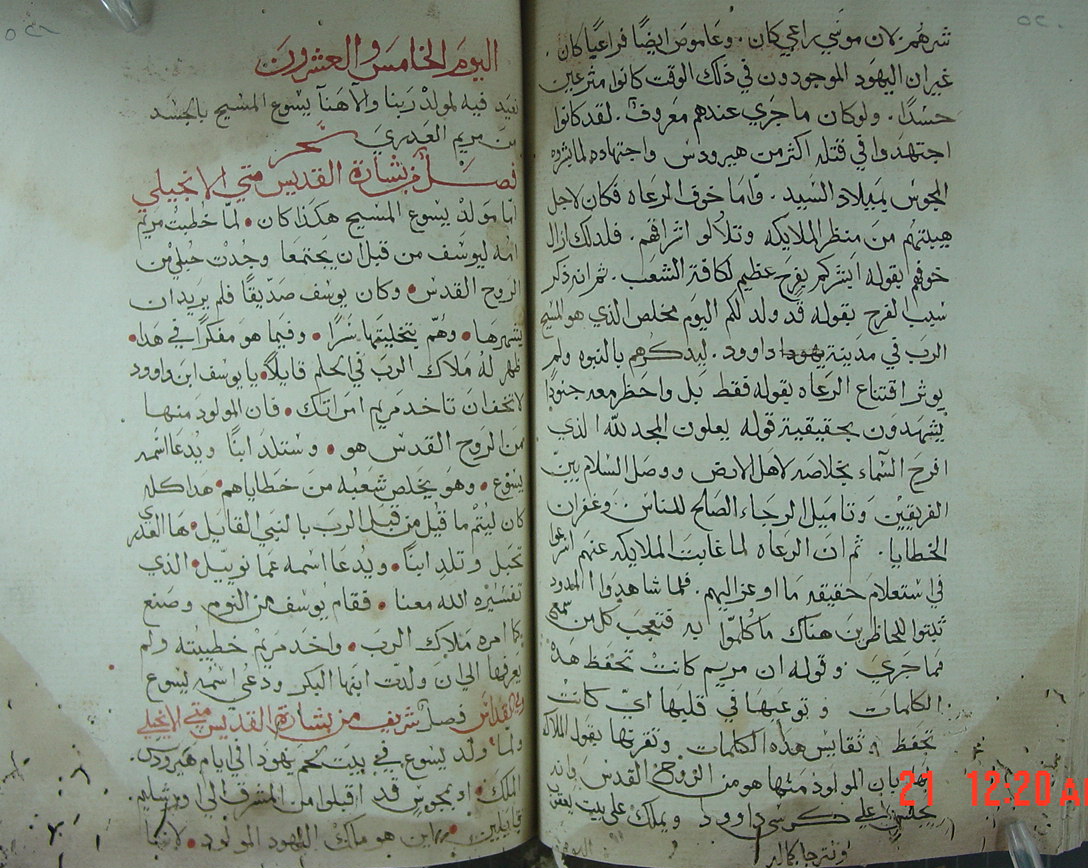 شرهم. لان موسي راعي كان. وعاموص ايضًا فراعيًا كان.
غير ان اليهود الموجودون في ذلك الوقت كانوا مترعين
حسدًا. ولو كان ما جري عندهم معروف. لقد كانوا
اجتهدوا في قتله اكثر من هيرودس واجتهاده لما بشروه
المجوس بميلاد السيد. واما خوف الرعاه فكان لاجل
هيبتهم من منظر الملايكه وتلالو اشراقهم. فلدلك ازال
خوفهم بقوله ابشركم بفرح عظيم لكافة الشعب. ثم انه ذكر
سبب الفرح بقوله قد ولد لكم اليوم مخلص الذي هو المسيح
الرب في مدينة يهودا داوود. ليدكرهم بالنبوه ولم
يوثر اقتناع الرعاه بقوله فقط بل واحظر معه جنودًا
يشهدون بحقيقية قوله يعلون المجد لله الذي
افرح السماء بخلاصه لاهل الارض ووصل السلام بين
الفريقين وتاميل الرجاء الصالح للناس وغفران
الخطايا. ثم ان الرعاه لما غابت الملايكه عنهم اسرعوا
في استعلام حقيقه ما اوعز اليهم. فلما شاهدوا المدود
ثبتوا للحاظرين هناك ما كلموا به فتعجب كل من سمع
مما جري. وقوله ان مريم كانت تحفظ هده
الكلمات وتوعبها في قلبها اي كانت
تحفظ وتقايس هذه الكلمات وتقرنها بقول الملاك
لها بان المولود منها هو من الروح القدس وانه
يجلس علي كرسي داوود ويملك علي بيت يعقوب
اليوم الخامس والعشرون
نعيد فيه لمولد ربنا والاهنا يسوع المسيح بالجسد
من مريم العدري
سحر
فصل من بشارة القديس متي الانجيلي
اما مولد يسوع المسيح هكذا كان • لما خطبت مريم
امه ليوسف من قبل ان يجتمعا وجدت حبلي من
الروح القدس • وكان يوسف صديقًا فلم يريد ان
يشهرها • وهم بتخليتها سرًا • وفيما هو مفكرًا في هدا •
ظهر له ملاك الرب في الحلم قايلًا • يا يوسف ابن داوود
لا تخف ان تاخد مريم امراتك • فان المولود منها
من الروح القدس هو • وستلد ابنًا ويدعا اسمه
يسوع • وهو يخلص شعبه من خطاياهم • هدا كله
كان ليتم ما قيل من قبل الرب بالنبي القايل • ها العدري
تحبل وتلد ابنًا • ويدعا اسمه عمانوييل • الذي
تفسيره الله معنا • فقام يوسف من النوم وصنع
كما امره ملاك الرب • واخد مريم خطيبته ولم
يعرفها الي ان ولدت ابنها البكر ودعي اسمه يسوع
في القداس فصل شريف من بشارة القديس متي الانجيلي
ولما ولد يسوع في بيت لحم يهودا في ايام هيرودس
الملك • اد مجوس قد اقبلوا من المشرق الي اورشليم
قايلين • اين هو ملك اليهود المولود • لاننا
21 12:20 AM